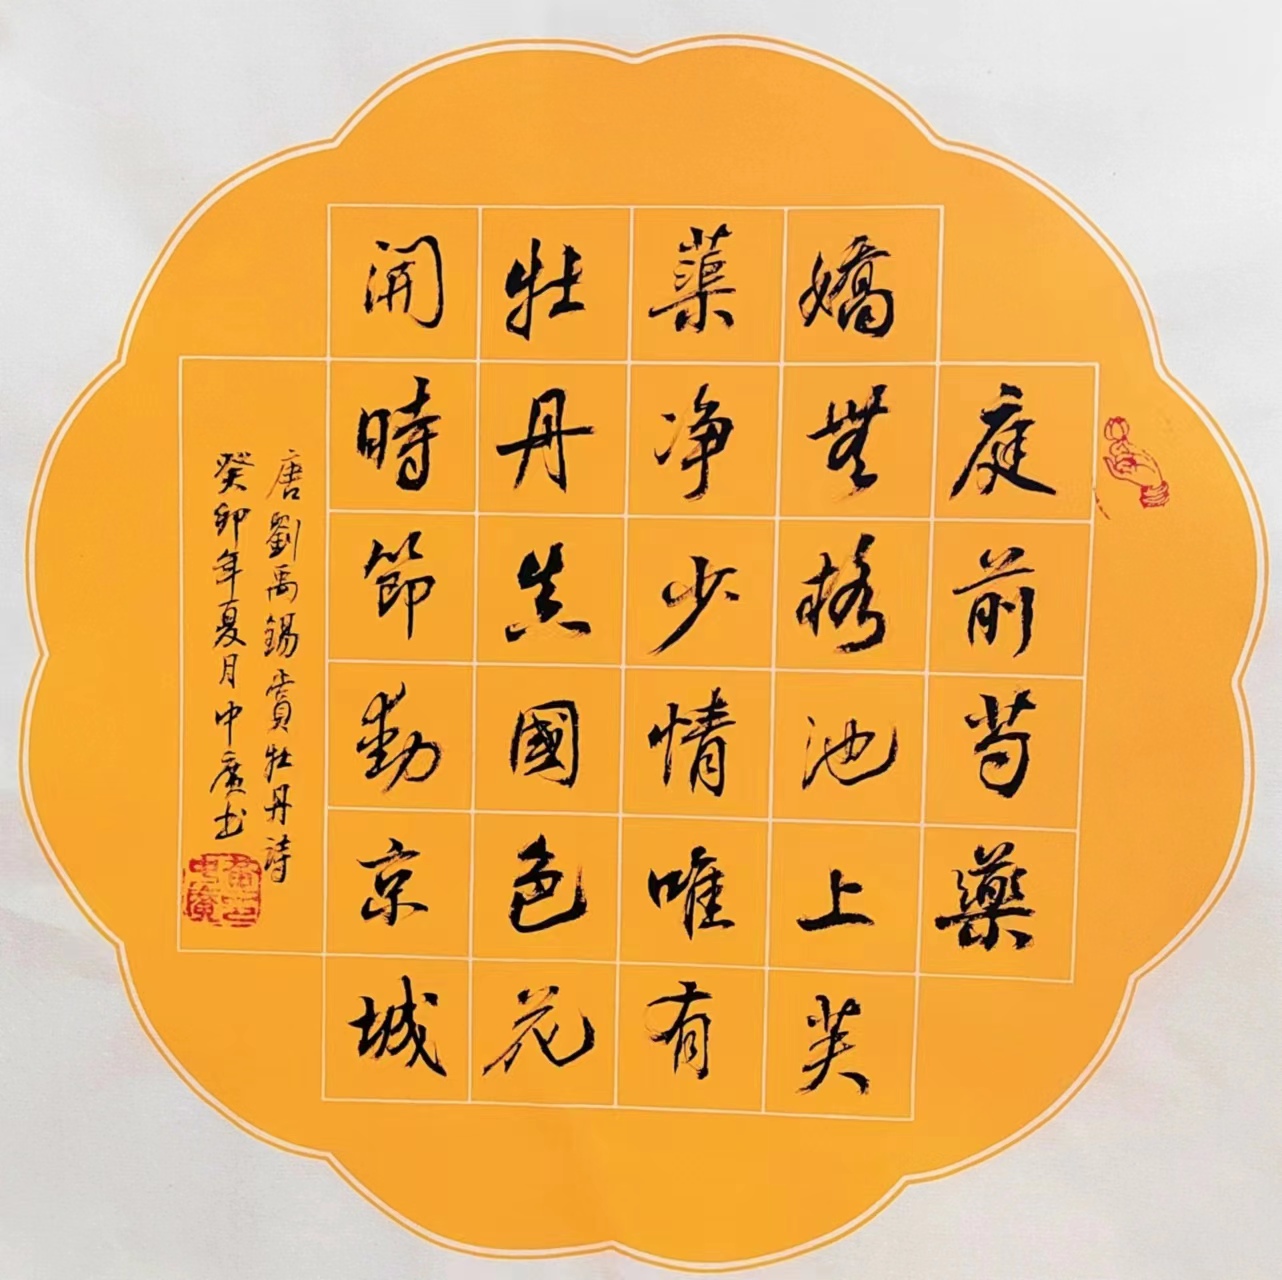 庭前芍藥
嬌無格池上芙
蕖净少情唯有
牡丹真國色花
開時節動京城
唐劉禹錫賞牡丹詩
癸卯年夏月中廣书